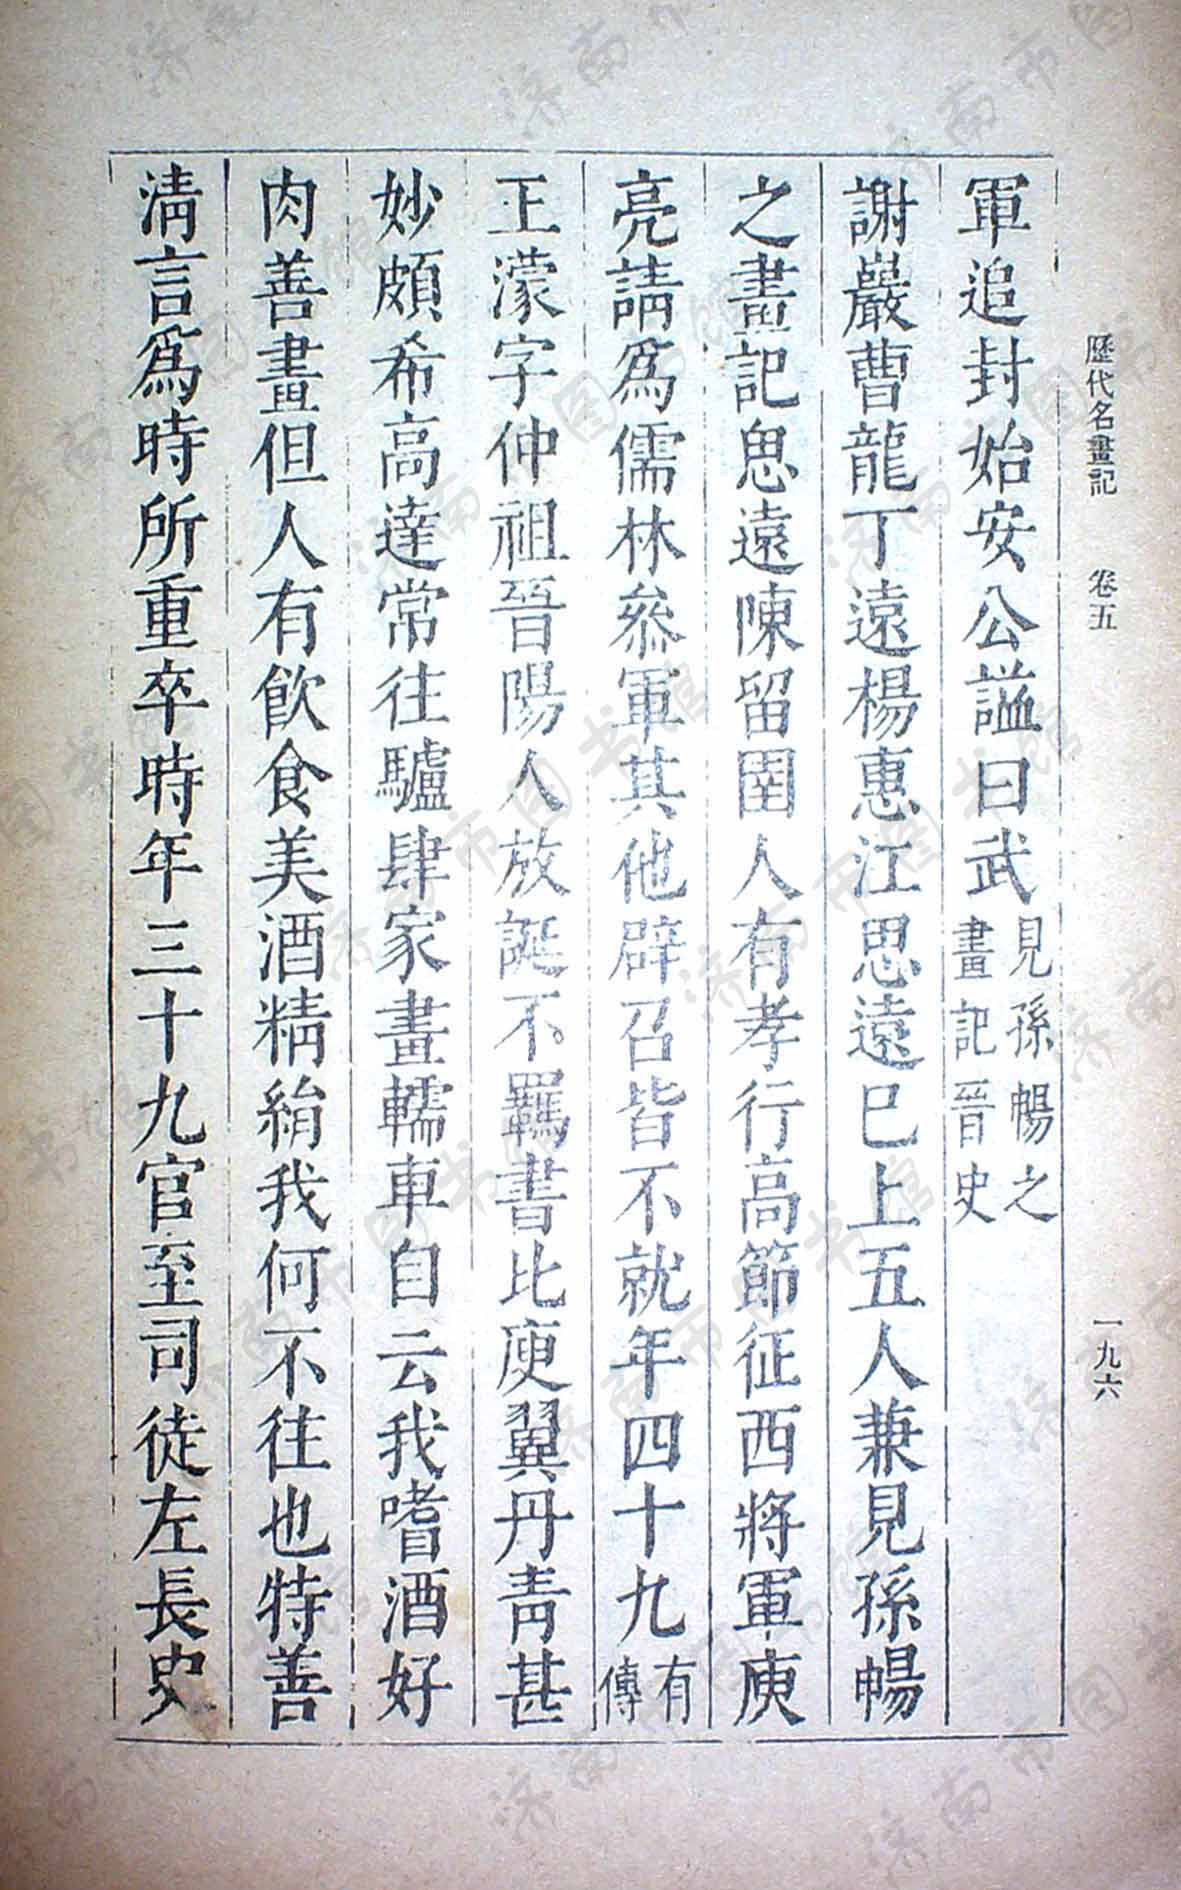 歷代名畫記　卷五　一九六
軍追封始安公謚曰武見孫暢之畫記晉史
謝巖曹龍丁遠楊惠江思遠巳上五人兼見孫暢
之畫記思遠陳留圉人有孝行高節征西將軍庾
亮請爲儒林叅軍其他辟召皆不就年四十九有傳
王濛字仲祖晉陽人放誕不羈書比庾翼丹青甚
妙頗希高達常往驢肆家畫轜車自云我嗜酒好
肉善畫但人有飲食美酒精絹我何不往也特善
清言爲時所重卒時年三十九官至司徒左長史
济南市图书馆